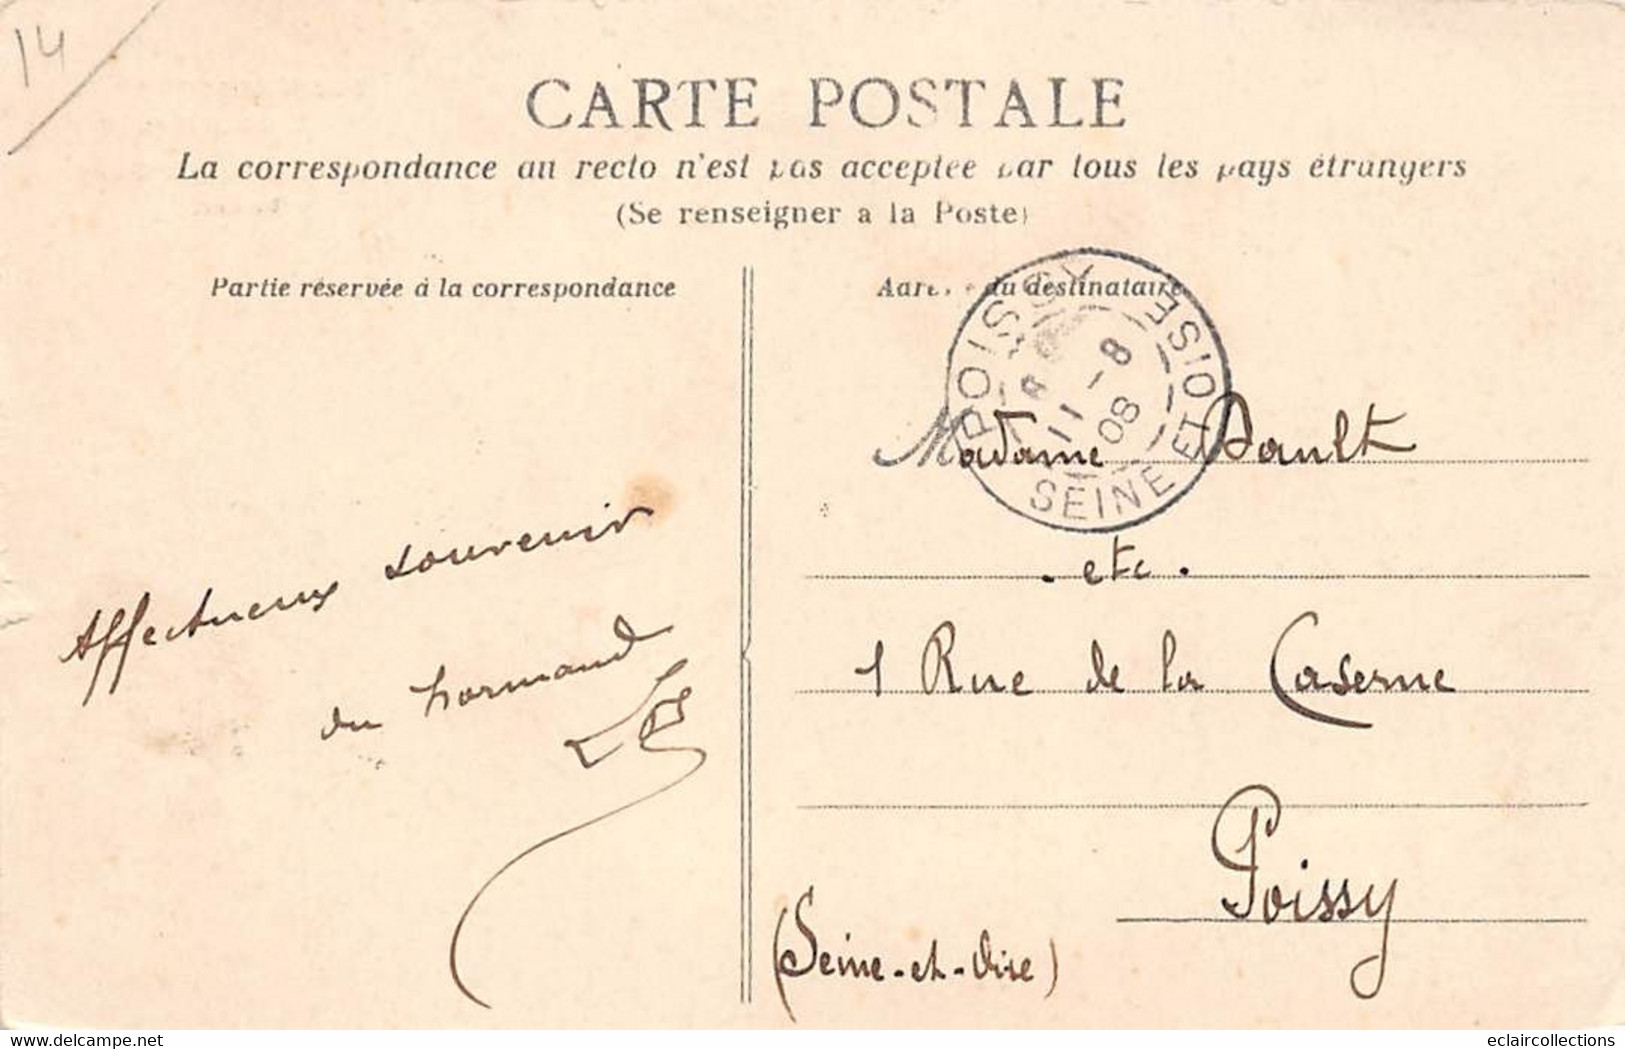 14
CARTE POSTALE
La correspondance au recto n'est pas acceptée par tous les pays étrangers
(Se renseigner a la Poste)
Partie réservée à la correspondance
du destinataire
POISSY
SEINE ET OISE
11 - 8
08
Madame Dault
. etc .
1 Rue de la Caserne
Poissy
(Seine-et-Oise)
Affectueux souvenir
du normand
delcampe.net
eclaircollections